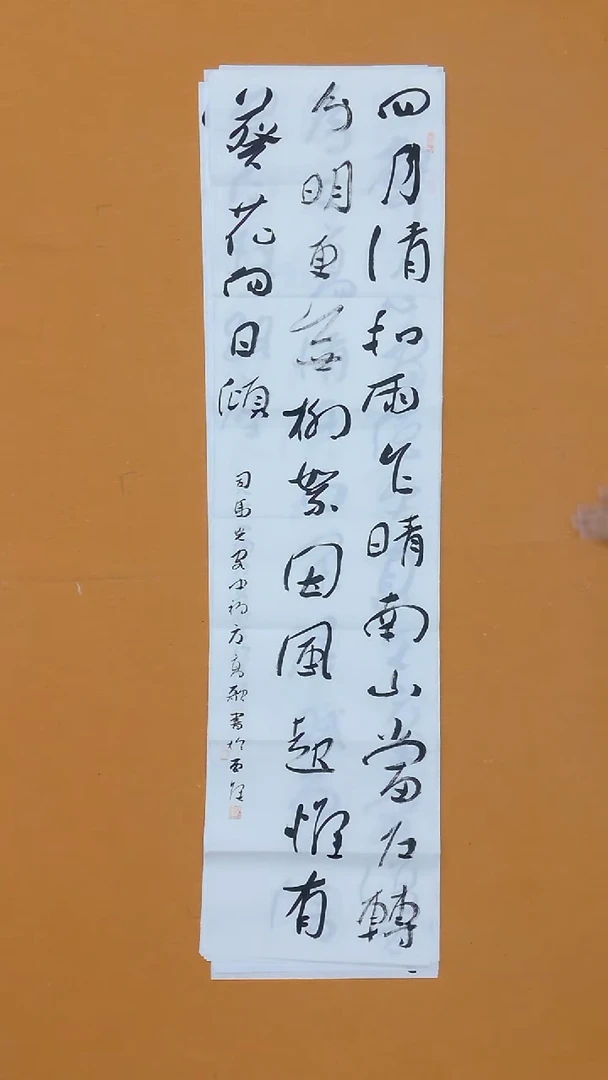 四月清和雨乍晴南山當户轉
分明更無柳絮因風起惟有
葵花向日傾
司馬光客中初夏書於西